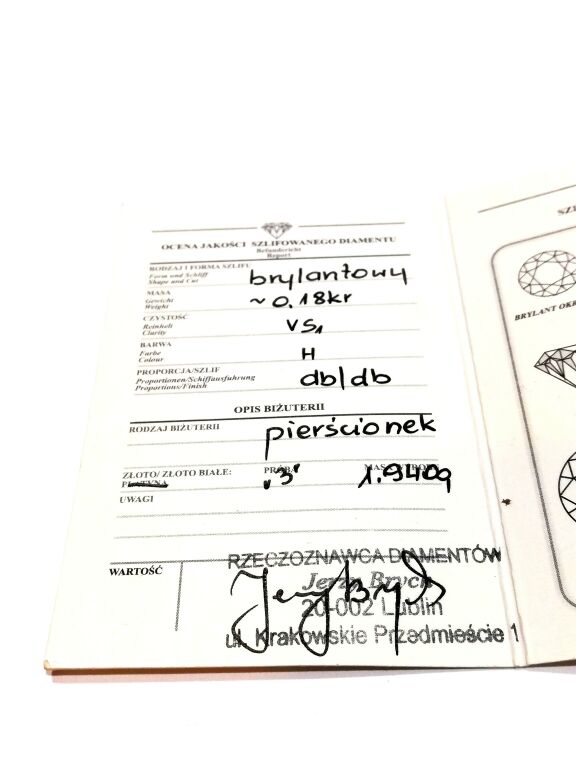 OCENA JAKOŚCI SZLIFOWANEGO DIAMENTU
Befundericht
Report
RODZAJ I FORMA SZLIFU brylantowy
Form und Schliff
Shape and Cut
MASA ~ 0.18kr
Gewicht
Weight
CZYSTOŚĆ VS1
Reinheit
Clarity
BARWA H
Farbe
Colour
PROPORCJA/SZLIF db/db
Proportionen/Schiffausfuhrung
Proportions/Finish
OPIS BIŻUTERII
RODZAJ BIŻUTERII pierścionek
ZŁOTO/ ZŁOTO BIAŁE: PRÓBA "3" 1.940g
PLATYNA
UWAGI
WARTOŚĆ
RZECZOZNAWCA DIAMENTÓW
Jerzy Brych
20-002 Lublin
ul. Krakowskie Przedmieście 1
BRYLANT